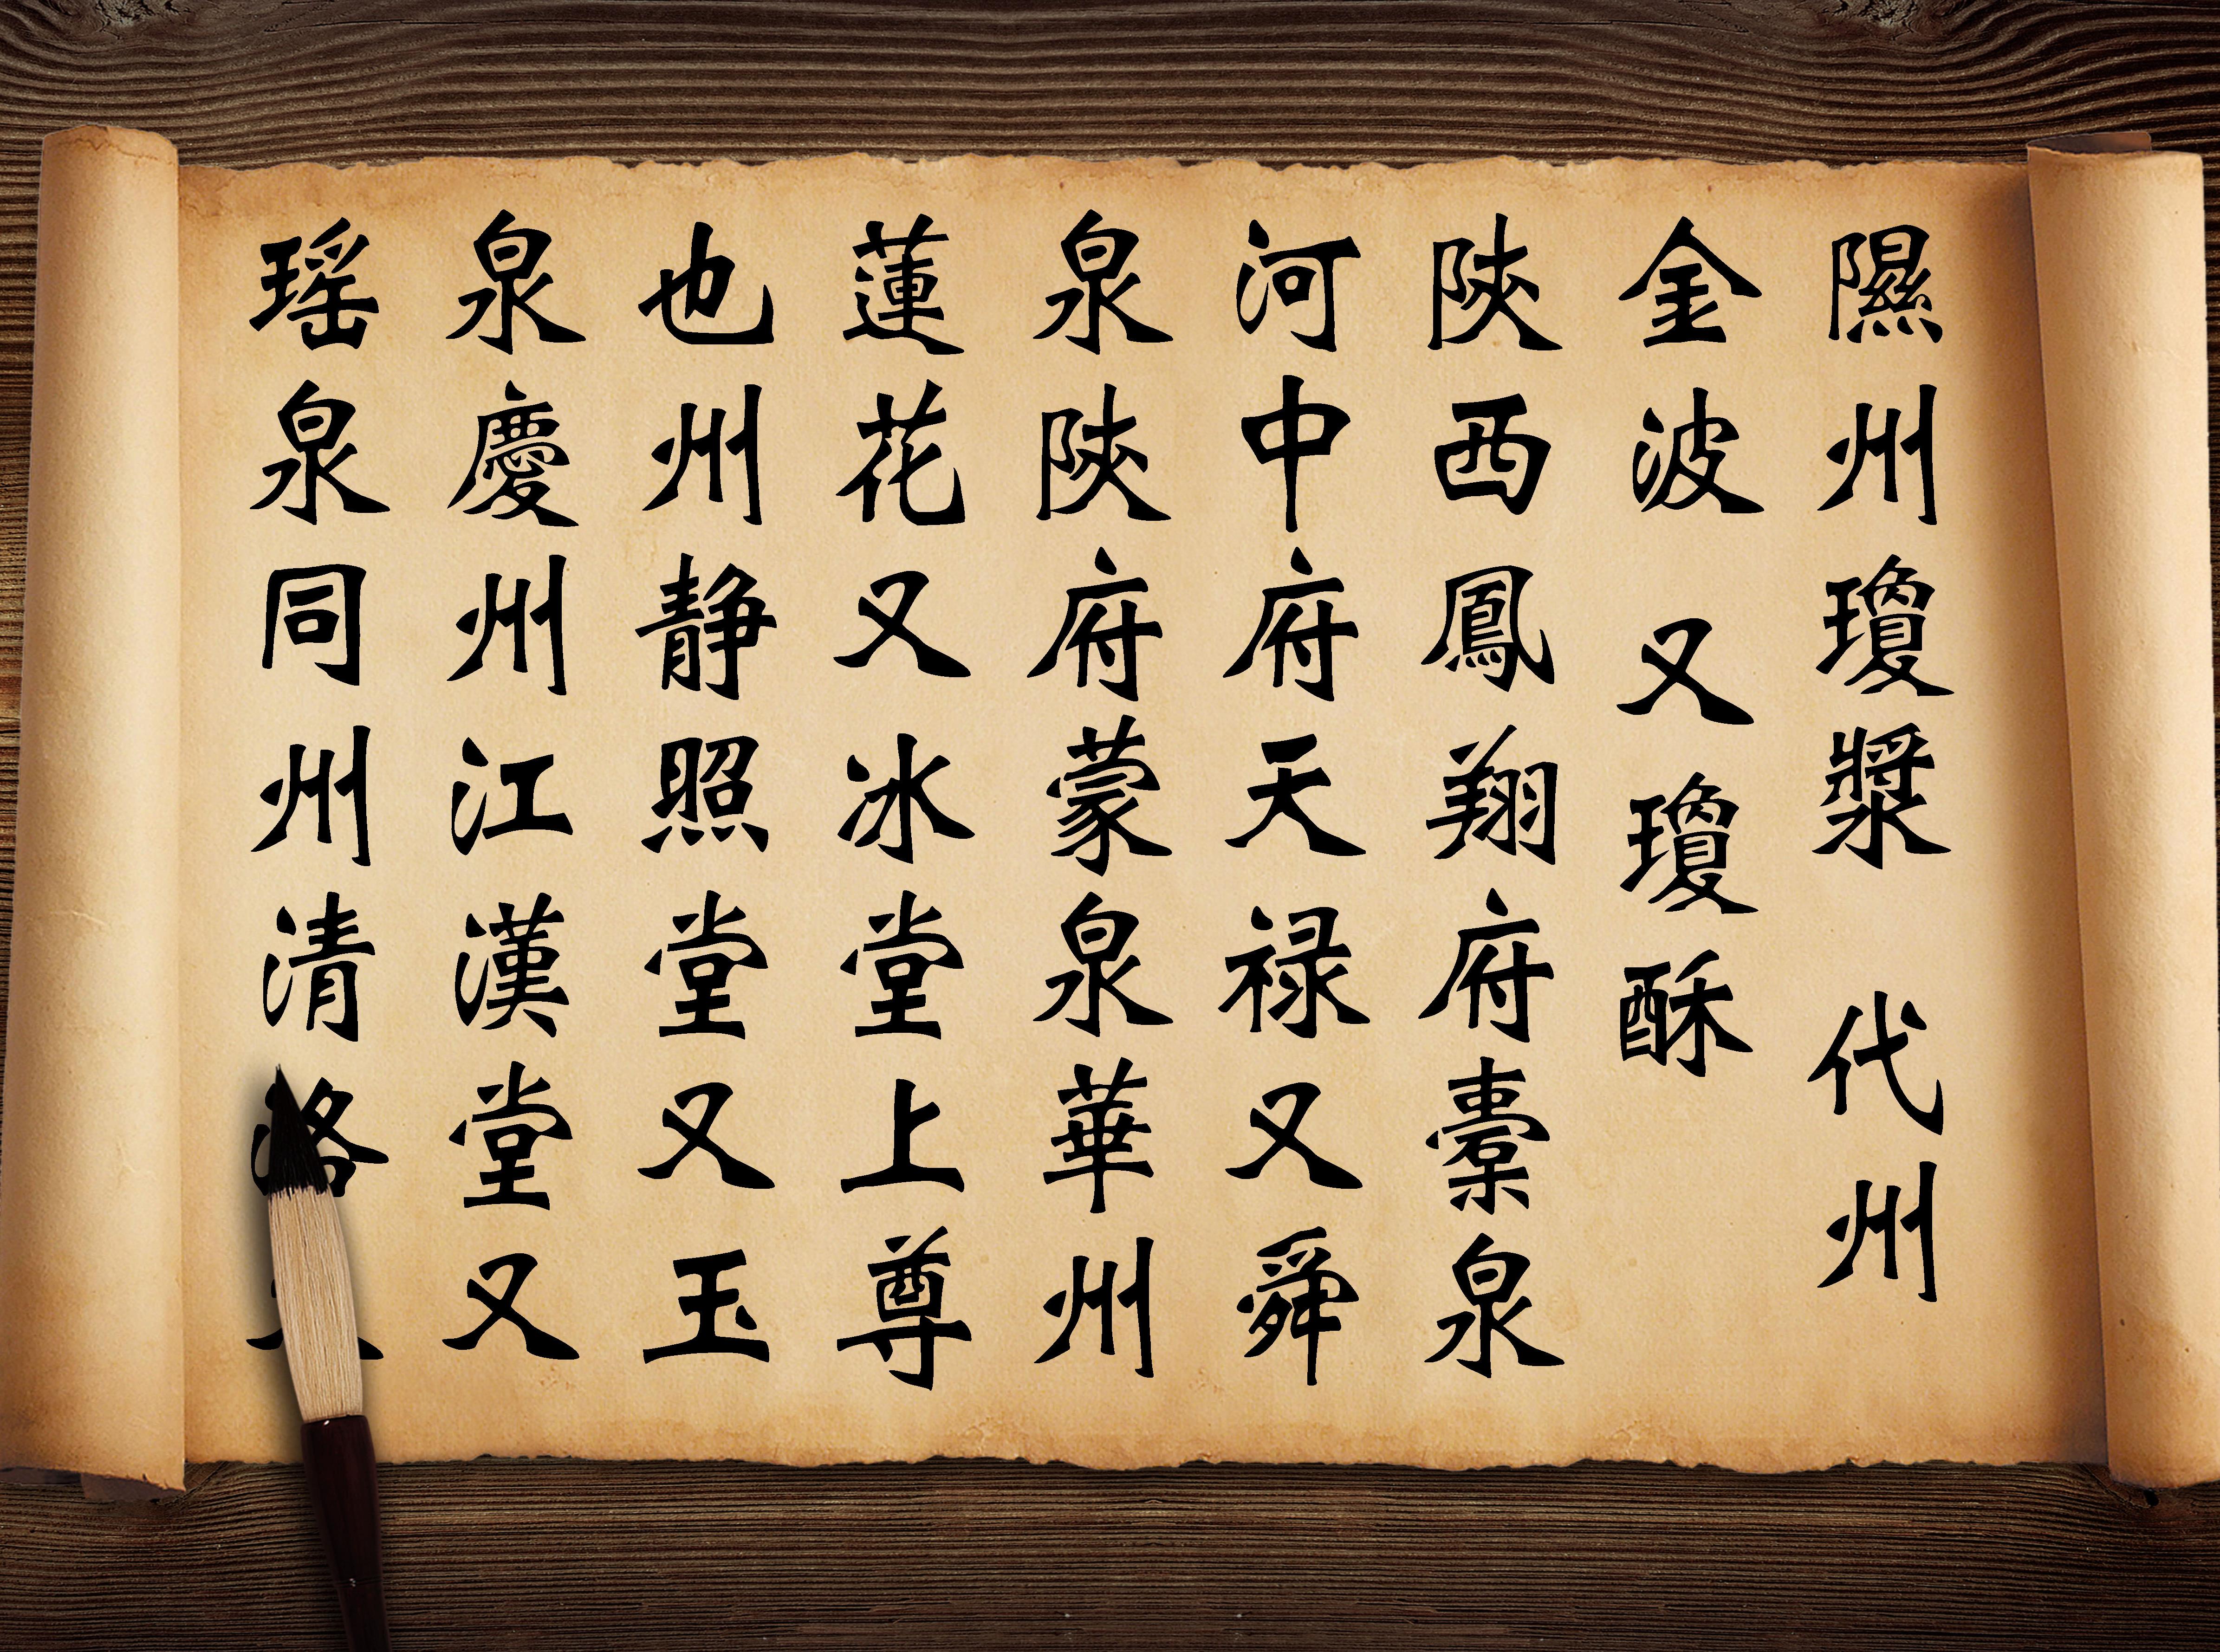 隰州瓊漿 代州
金波 又瓊酥
陝西鳳翔府橐泉
河中府天禄又舜
泉陝府蒙泉華州
蓮花又冰堂上尊
也州静照堂又玉
泉慶州江漢堂又
瑶泉同州清洛